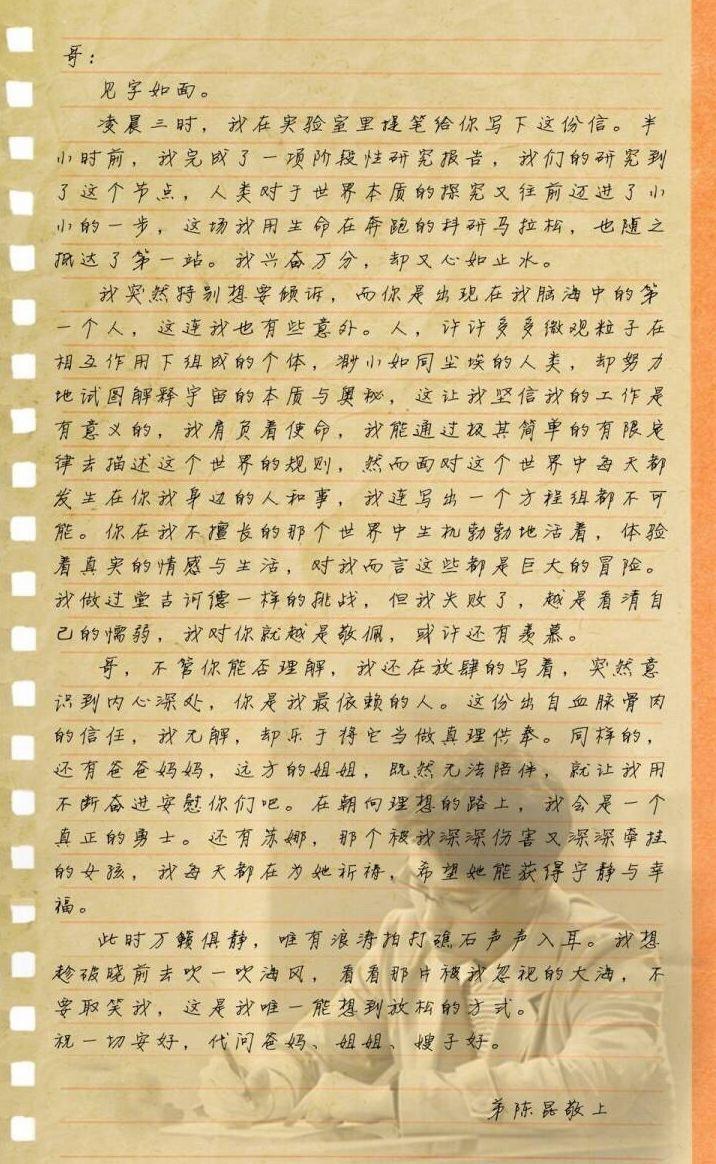 哥：
见字如面。
凌晨三时，我在实验室里提笔给你写下这份信。半
小时前，我完成了一项阶段性研究报告，我们的研究到
了这个节点，人类对于世界本质的探究又往前迈进了小
小的一步，这场我用生命在奔跑的科研马拉松，也随之
抵达了第一站。我兴奋万分，却又心如止水。
我突然特别想要倾诉，而你是出现在我脑海中的第
一个人，这连我也有些意外。人，许许多多微观粒子在
相互作用下组成的个体，渺小如同尘埃的人类，却努力
地试图解释宇宙的本质与奥秘，这让我坚信我的工作是
有意义的，我肩负着使命，我能通过极其简单的有限定
律去描述这个世界的规则，然而面对这个世界中每天都
发生在你我身边的人和事，我连写出一个方程组都不可
能。你在我不擅长的那个世界中生机勃勃地活着，体验
着真实的情感与生活，对我而言这些都是巨大的冒险。
我做过堂吉诃德一样的挑战，但我失败了，越是看清自
己的懦弱，我对你就越是敬佩，或许还有羡慕。
哥，不管你能否理解，我还在放肆的写着，突然意
识到内心深处，你是我最依赖的人。这份出自血脉骨肉
的信任，我无解，却乐于将它当做真理供奉。同样的，
还有爸爸妈妈，远方的姐姐，既然无法陪伴，就让我用
不断奋进安慰你们吧。在朝向理想的路上，我会是一个
真正的勇士。还有苏娜，那个被我深深伤害又深深牵挂
的女孩，我每天都在为她祈祷，希望她能获得宁静与幸
福。
此时万籁俱静，唯有浪涛拍打礁石声声入耳。我想
趁破晓前去吹一吹海风，看看那片被我忽视的大海，不
要取笑我，这是我唯一能想到放松的方式。
祝一切安好，代问爸妈、姐姐、嫂子好。
弟陈昆敬上